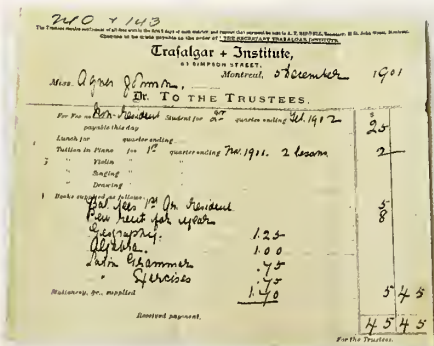 240 + 143
The Trustees receive settlement of all fees within the first 5 days of each quarter, and request that payment be made to A. F. RIDDELL, Treasurer, 22 St. John Street, Montreal.
Cheques to be made payable to the order of "THE SECRETARY TRAFALGAR INSTITUTE."
Trafalgar + Institute,
83 SIMPSON STREET.
Montreal, 5 December 1901
Miss. Agnes Johnson.
Dr. TO THE TRUSTEES.
For Fee as Non-Resident Student for 2nd quarter ending Feb. 1902 $ 25
payable this day
Lunch for quarter ending
Tuition in Piano for 1st quarter ending Nov. 1901. 2 lessons. 2
" Violin " "
" Singing " "
" Drawing "
Books supplied as follows:
Bal. fees 1st Qr. Resident 5
Pew rent for year 8
Geography. 1.25
Algebra. 1.00
Latin Grammar .75
" Exercises .75
Stationery, &c., supplied 1.70 5 45
Received payment, 45 45
For the Trustees.